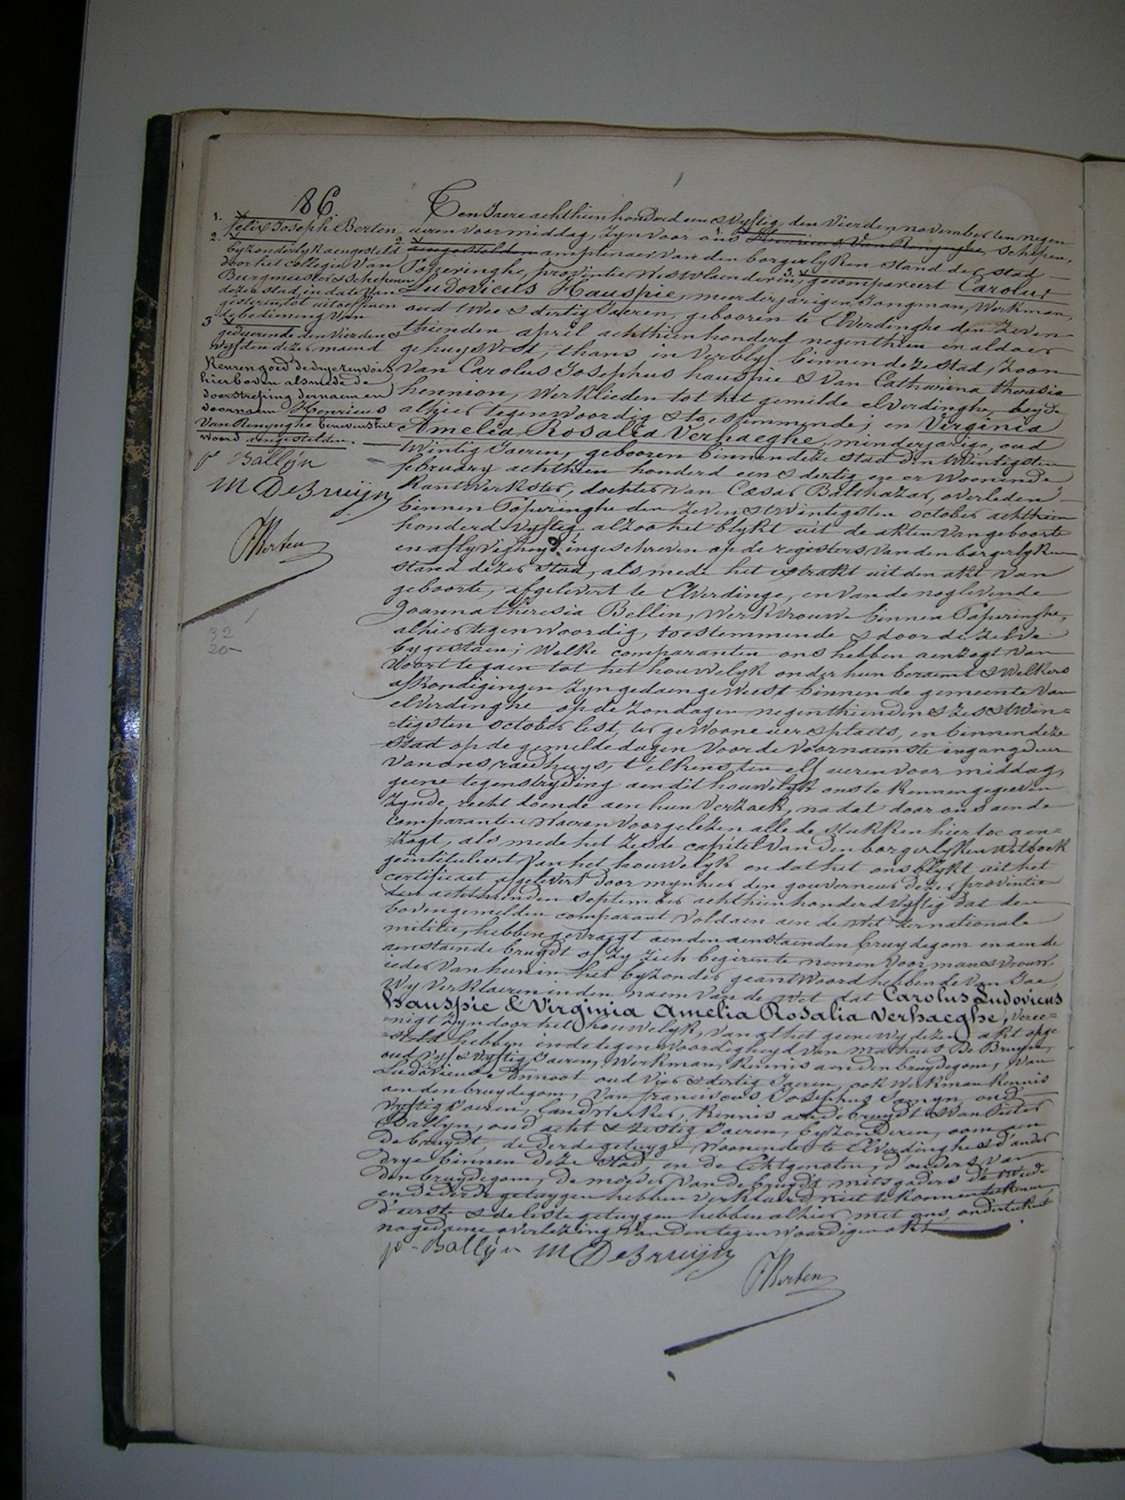 86
1. Felix Joseph Berten
2. byzonderlyk aengesteld
door het collegie van
Burgmeester & Schepenen
dezer stad, in date van
gisteren, tot uitoeffenen
dezer bediening van
3 gedurende den vierden &
vyfden dezer maend
Keuren goed de drye renvois
hierboven alsmede de
doorstreping der naem en
voornaem Henricus
Van Renynghe benevens het
woord aengestelden.
p. Ballyn
M DeBruijn
FBerten
32
20
Ten Jaere achthien honderd een & vyftig den vierden november ten negen
ueren voor middag, zyn voor ons 1. Henricus Van Renynghe, Schepen,
2. aengestelden amptenaer van den borgerlyken stand der stad
Poperinghe, provintie Westvlaenderen, 3. gecompareert Carolus
Ludovicus Hauspie, meerderjarigen Jongman, Werkman,
oud twee & dertig Jaeren, geboren te Elverdinghe den zeven-
thienden april achthienhonderd negenthien en aldaer
gehuysvest, thans in verblyf binnen deze stad, zoon
van Carolus Josephus hauspie & van Catharina theresia
hennion, Werklieden tot het gemelde elverdinghe, beyde
alhier tegenwoordig & toestemmende; en Virginia
Amelia Rosalia Verhaeghe, minderjarige, oud
twintig Jaeren, geboren binnen deze stad den twintigsten
february achthien honderd een & dertig en er woonende
Kantwerkster, dochter van Cæsar Balthazar, overleden
binnen Poperinghe den zeven & twintigsten october achthien
honderd vyftig, alzoo het blykt uit de akten van geboorte
en aflyvigheyd, ingeschreven op de registers van den borgerlyken
stand dezer stad, als mede het extrakt uit den akt van
geboorte, afgelevert te Elverdinge, en van de noglevende
Joanna theresia Bellin, Werkvrouwe binnen Poperinghe,
alhier tegenwoordig, toestemmende & door de zelve
bygestaen; welke comparanten ons hebben aenzogt van
voort te gaen tot het houwelyk onder hun beraemt & welkers
afkondigingen zyn gedaen geweest binnen de gemeente van
elverdinghe op de zondagen negenthienden & zes & twin-
tigsten october lest, ter gewoone uer & plaets, en binnen deze
stad op de gemelde dagen voor de voornaemste ingangdeur
van ons raedhuys, t'elkens ten elf ueren voor middag,
geene tegenstryding aen dit houwelyk ons te kennen gegeven
zynde, recht doende aen hun verzoek, na dat door ons aen de
comparanten waeren voorgelezen alle de stukken hier toe aen-
zogt, als mede het zesde capitel van den borgerlyken wetboek
geintituleert van het houwelyk en dat het ons blykt uit het
certificaet afgelevert door mynheer den gouverneur dezer provintie
den achttienden september achthienhonderd vyftig dat den
bovengemelden comparant voldaen aen de wet der nationale
militie, hebben gevraegt aen den aenstaenden bruydegom en aen de
aenstaende bruydt of zy zich begeerente nemen voor man & vrouw.
ieder van hun in het byzonder geantwoord hebbende van Jae,
wy verklaeren in den naem van de wet dat Carolus Ludovicus
Hauspie & Virginia Amelia Rosalia Verhaeghe, veree-
nigt zyn door het houwelyk, van al het geene wy dezen akt opge-
steld hebben in de tegenwoordigheyd van Matheus De Bruyne,
oud vyf & vyftig Jaeren, Werkman, kennis aen den bruydegom, van
Ludovicus Ennoot oud vier & dertig Jaeren, ook Werkman kennis
aen den bruydegom, van franciscus Josephus Samyn, oud
vyftig Jaeren, landwerker, kennis aen de bruydt & van Pieter
Ballyn, oud acht & zestig Jaeren, byzonderen, oom aen
de bruydt, de derde getuyge woonende te Elverdinghe & d'ander
drye binnen deze stad, en de Echtgenoten, d'ouders van
den bruydegom, de moeder van de bruydt mitsgaders de tweede
en derde getuygen hebben verklaerd niet te konnen teekenen,
d'eerste & de leste getuygen hebben alhier met ons onderteekent
na gedaene overlezing van den tegenwoordigen akt
p. Ballyn M DeBruijn
FBerten